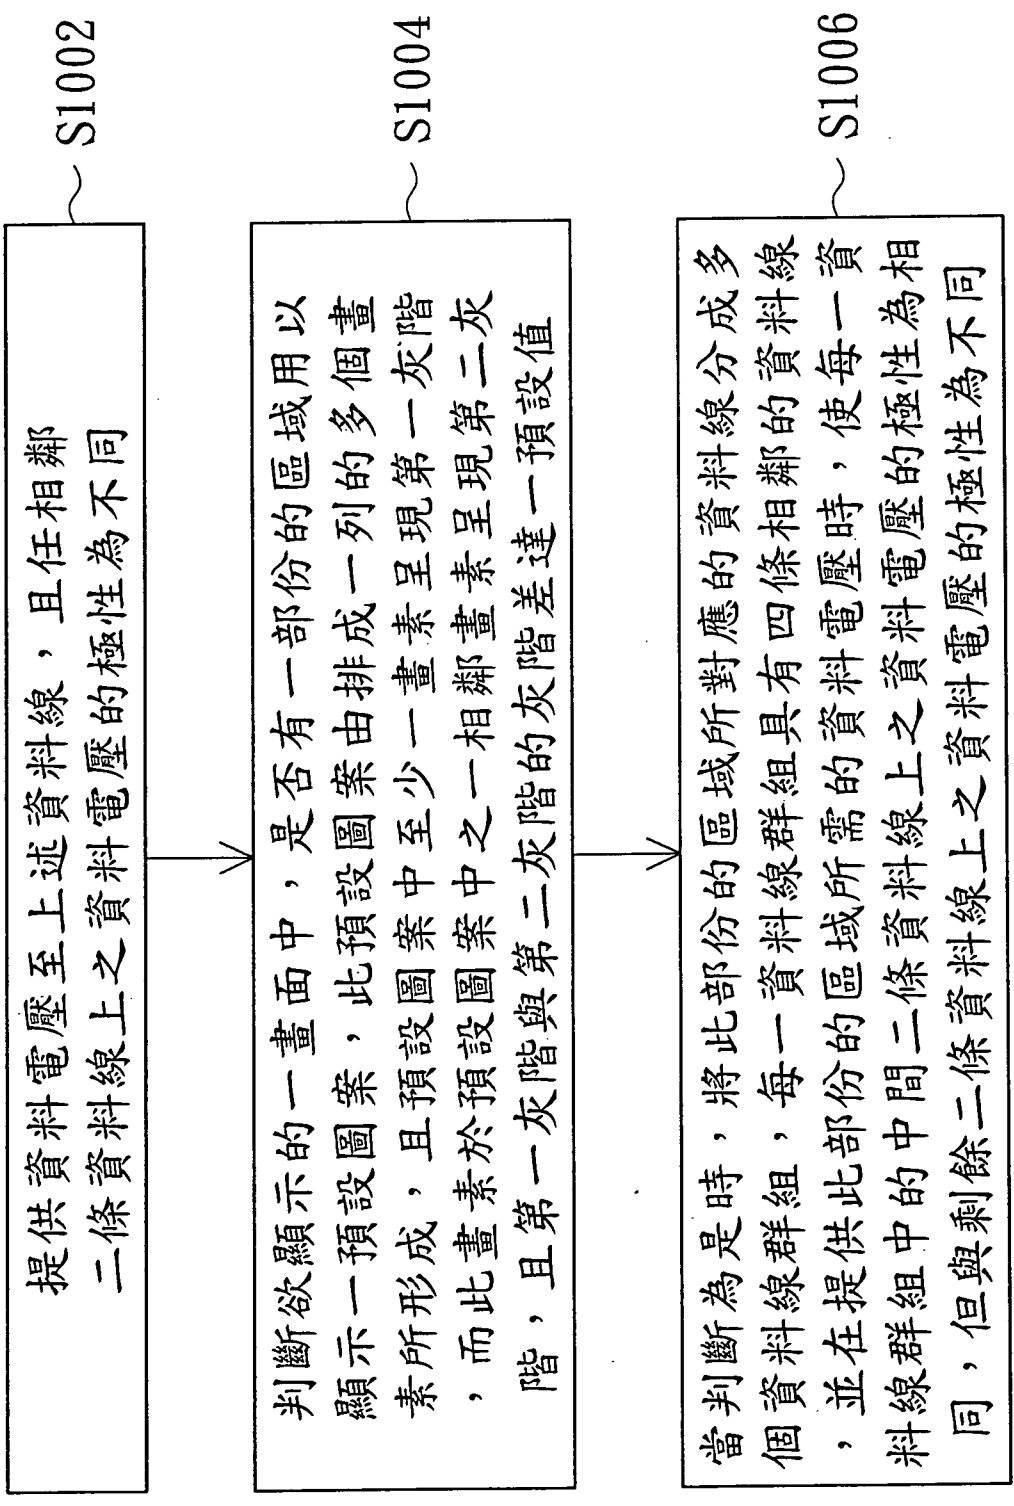 S1002
提供資料電壓至上述資料線，且任相鄰
二條資料線上之資料電壓的極性為不同
S1004
判斷欲顯示的一畫面中，是否有一部份的區域用以
顯示一預設圖案，此預設圖案由排成一列的多個畫
素所形成，且預設圖案中至少一畫素呈現第一灰階
，而此畫素於預設圖案中之一相鄰畫素呈現第二灰
階，且第一灰階與第二灰階的灰階差達一預設值
S1006
當判斷為是時，將此部份的區域所對應的資料線分成多
個資料線群組，每一資料線群組具有四條相鄰的資料線
，並在提供此部份的區域所需的資料電壓時，使每一資
料線群組中的中間二條資料線上之資料電壓的極性為相
同，但與剩餘二條資料線上之資料電壓的極性為不同